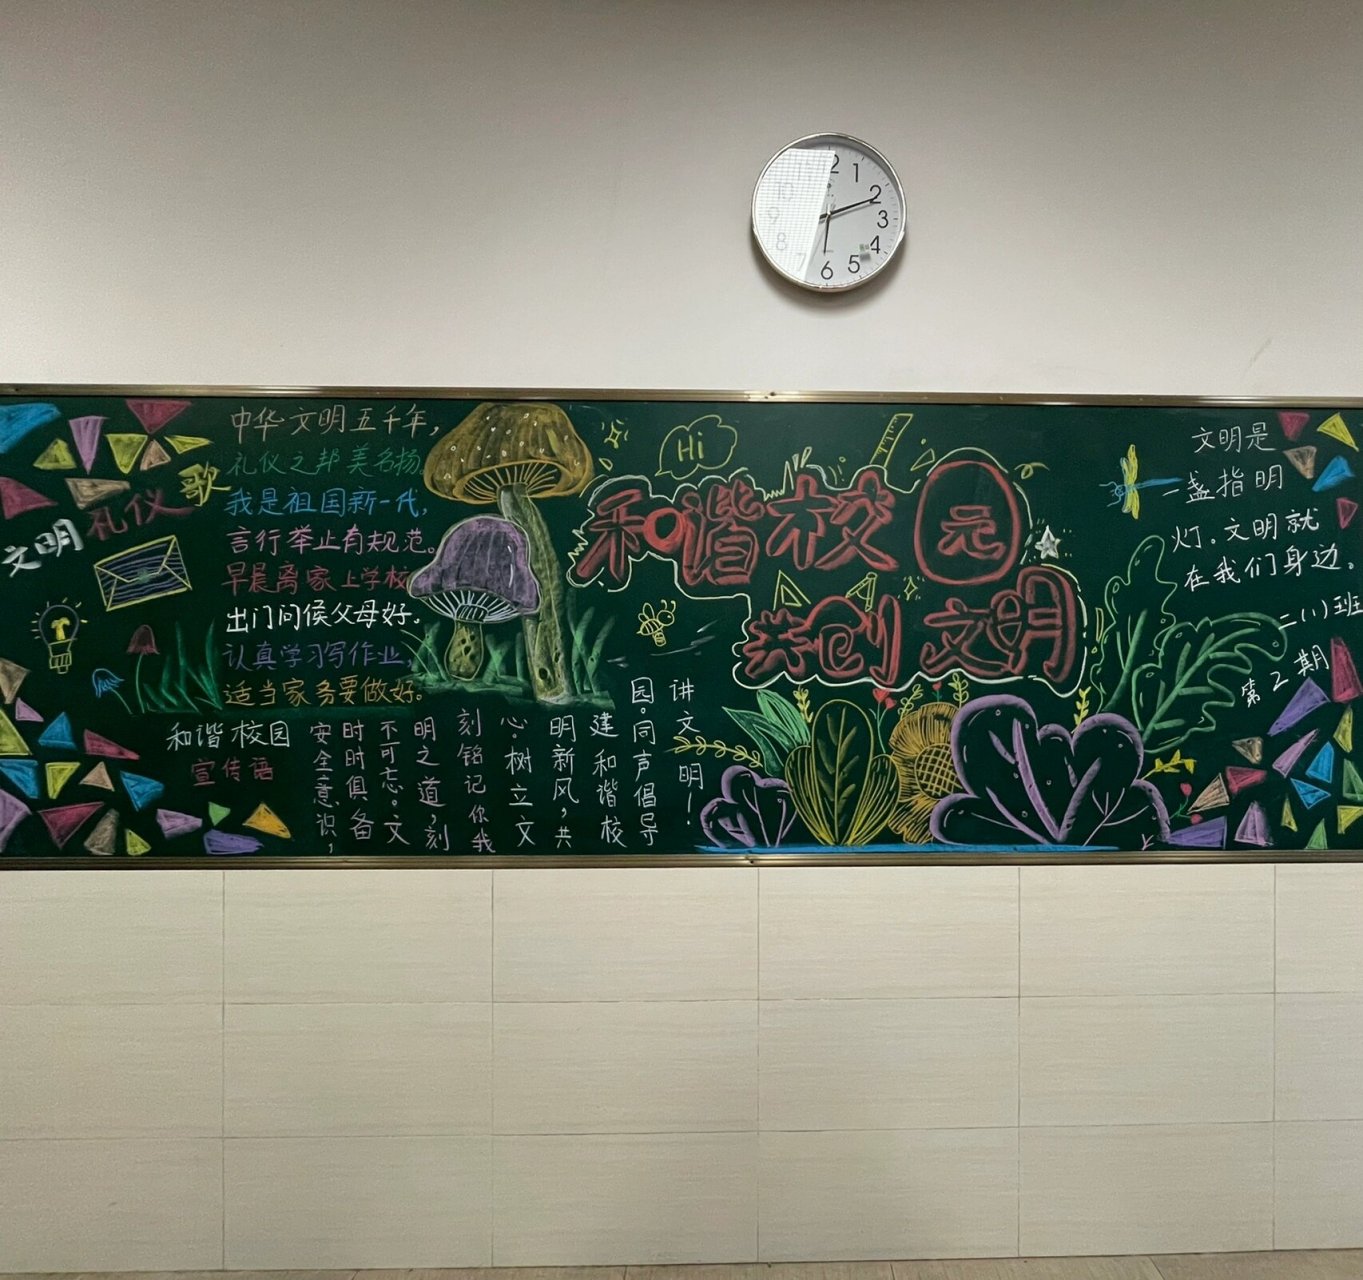 10
9
8
7
2
1
2
3
4
5
6
文明礼仪歌
中华文明五千年，
礼仪之邦美名扬
我是祖国新一代，
言行举止有规范。
早晨离家上学校
出门问候父母好。
认真学习写作业，
适当家务要做好。
和谐校园
宣传语
安全意识，
时时俱备
不可忘。文
明之道，刻
刻铭记你我
心。树立文
明新风，共
建和谐校
园。同声倡导
讲文明！
Hi
和谐校园
共创文明
文明是
一盏指明
灯。文明就
在我们身边。
二（1）班
第2期